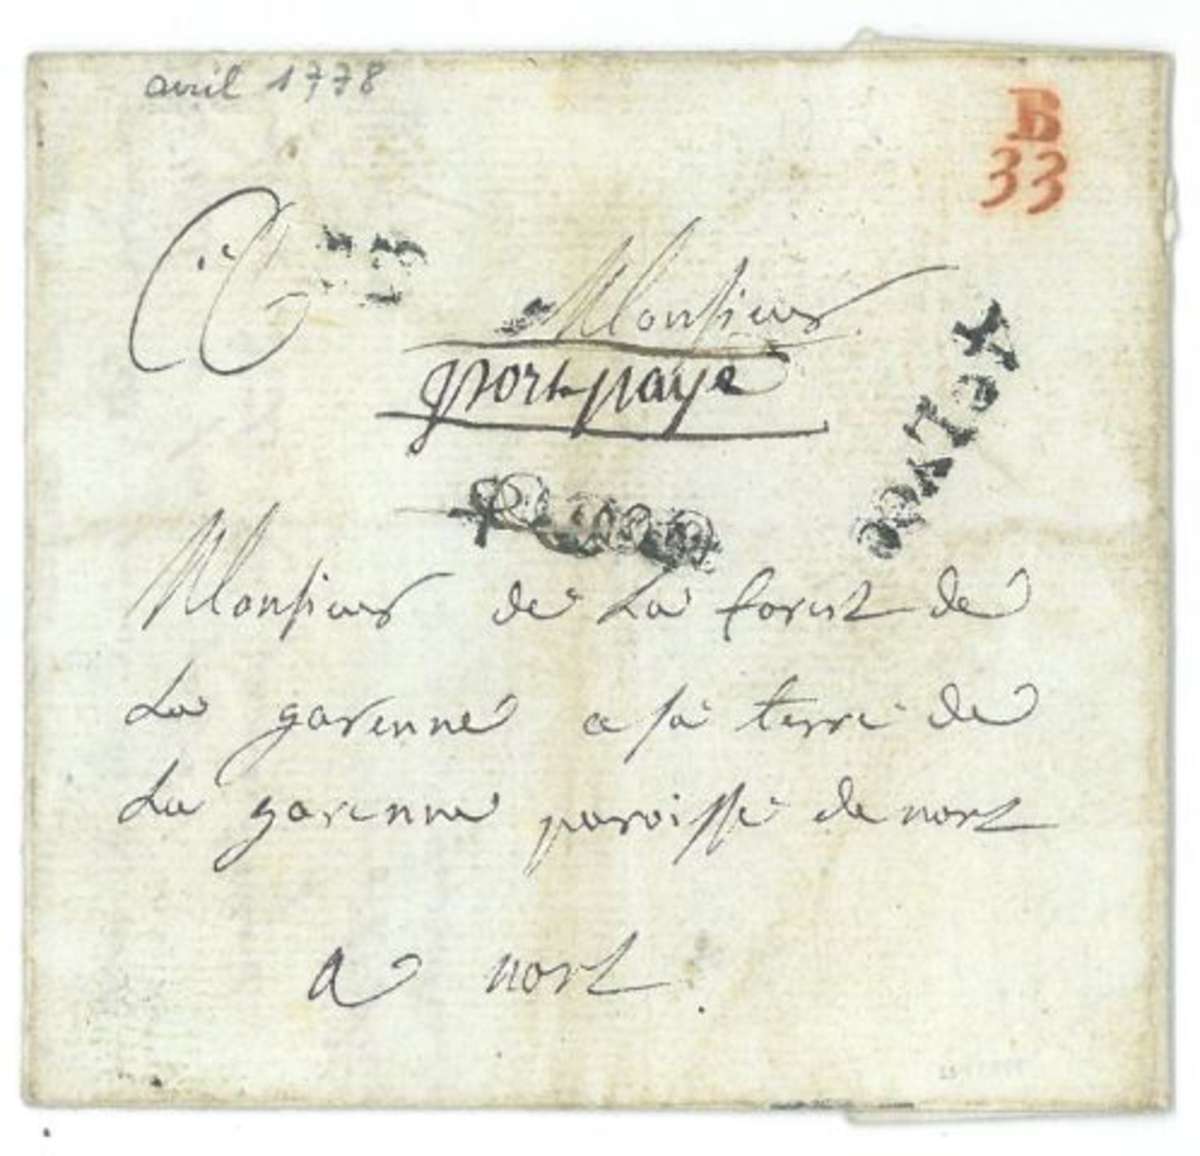 avril 1778
B
33
Monsieur
port paye
Monsieur de La forest de
La garenne a sa terre de
La garenne paroisse de nort
a nort